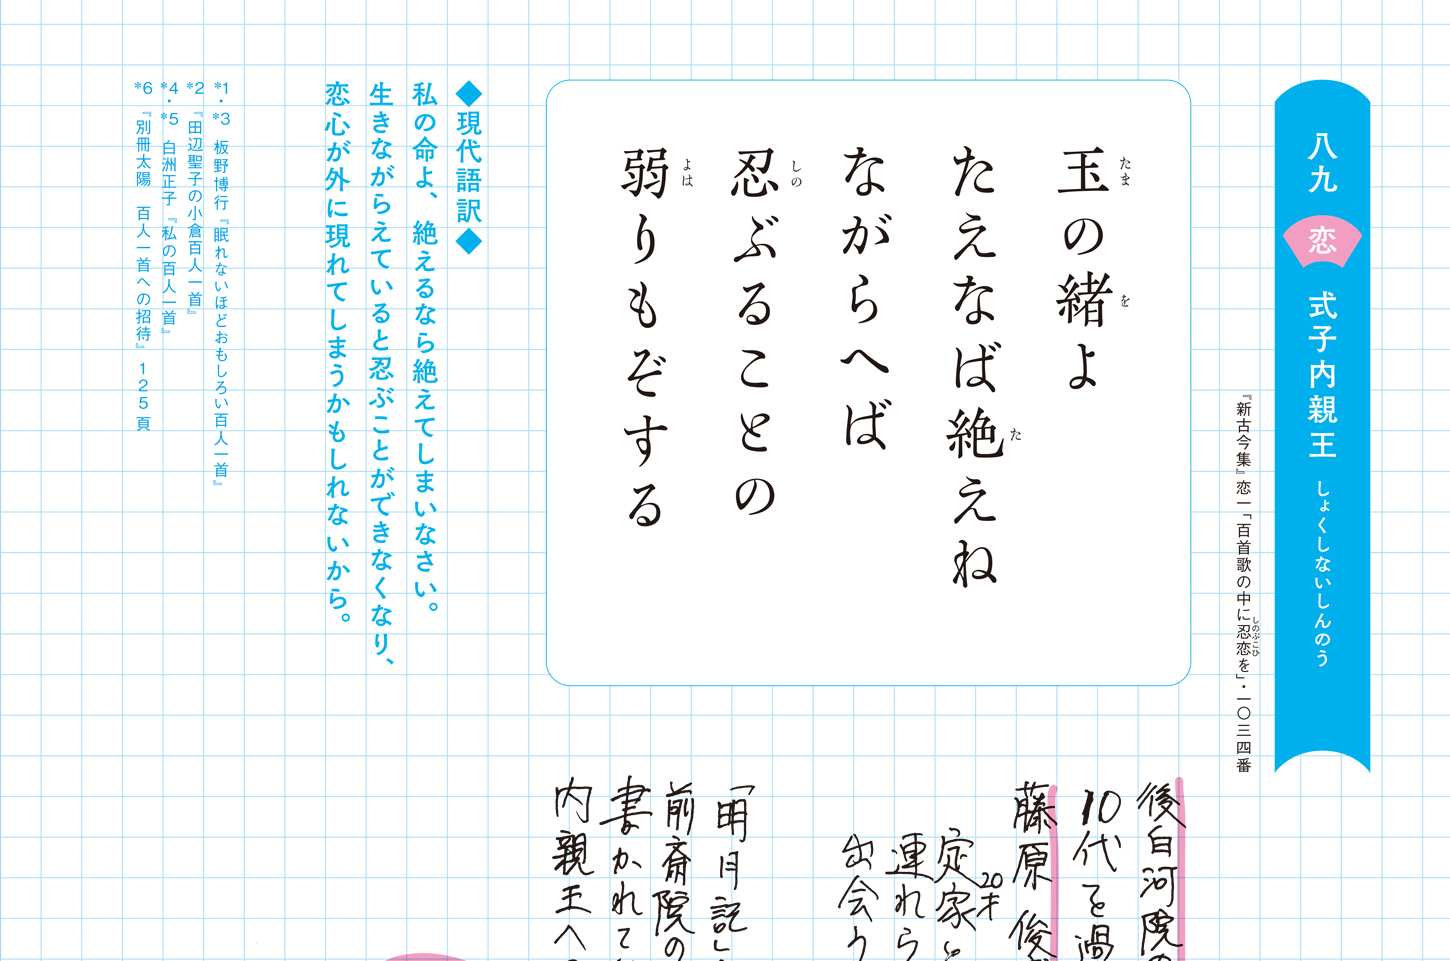 八九 恋 式子内親王 しょくしないしんのう
『新古今集』恋一「百首歌の中に忍恋を」・一〇三四番
しのぶこひ
玉の緒よ
たま を
たえなば絶えね
た
ながらへば
忍ぶることの
しの
弱りもぞする
よは
◆現代語訳◆
私の命よ、絶えるなら絶えてしまいなさい。
生きながらえていると忍ぶことができなくなり、
恋心が外に現れてしまうかもしれないから。
*1・*3 板野博行『眠れないほどおもしろい百人一首』
*2 『田辺聖子の小倉百人一首』
*4・*5 白洲正子『私の百人一首』
*6 『別冊太陽 百人一首への招待』125頁
後白河院の
10代を過
藤原俊
20才
定家と
連れら
出会う
「明月記」
前斎院の
書かれて
内親王へ